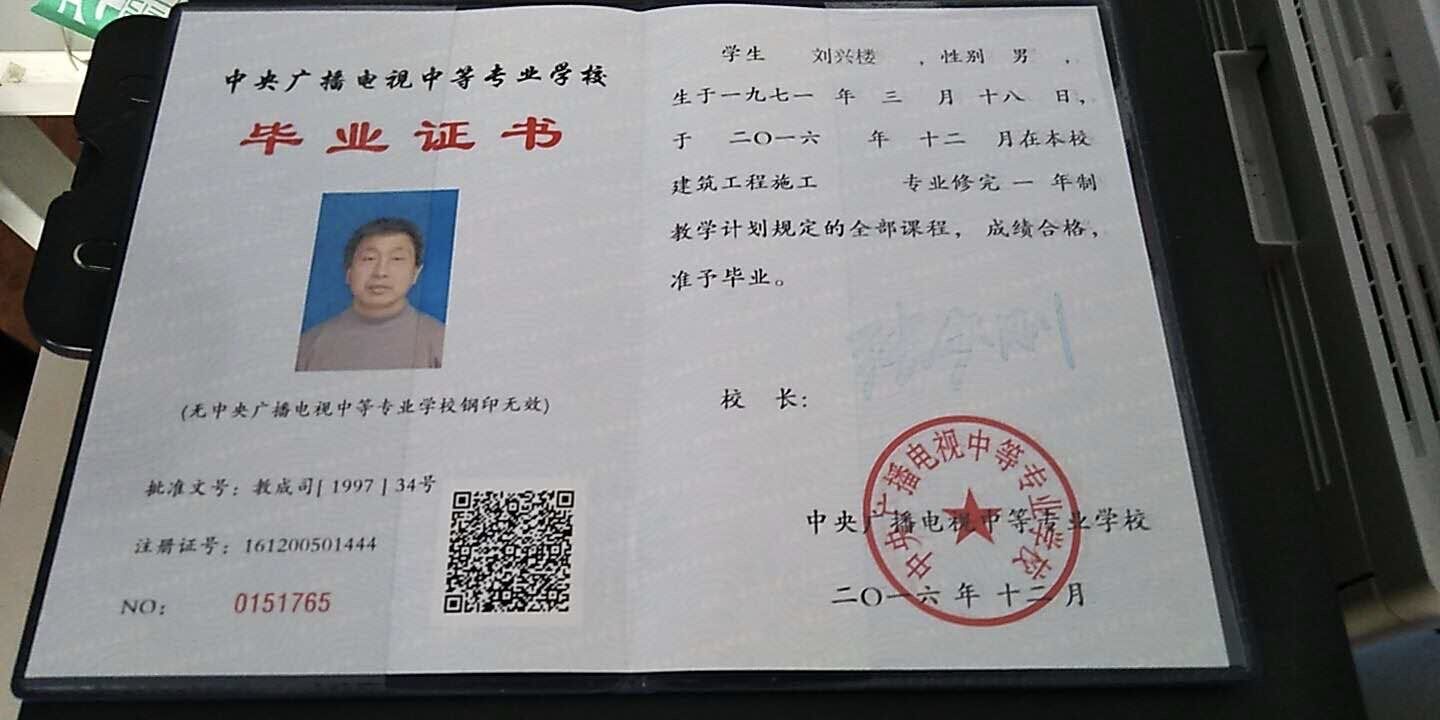 中央广播电视中等专业学校
毕业证书
(无中央广播电视中等专业学校钢印无效)
批准文号：教成司[ 1997 ] 34号
注册证号：161200501444
NO： 0151765
学生 刘兴楼 ，性别 男 ，
生于一九七一 年 三 月 十八 日，
于 二〇一六 年 十二 月在本校
建筑工程施工 专业修完 一 年制
教学计划规定的全部课程，成绩合格，
准予毕业。
校 长：
中央广播电视中等专业学校
中央广播电视中等专业学校
二〇一六 年 十二 月